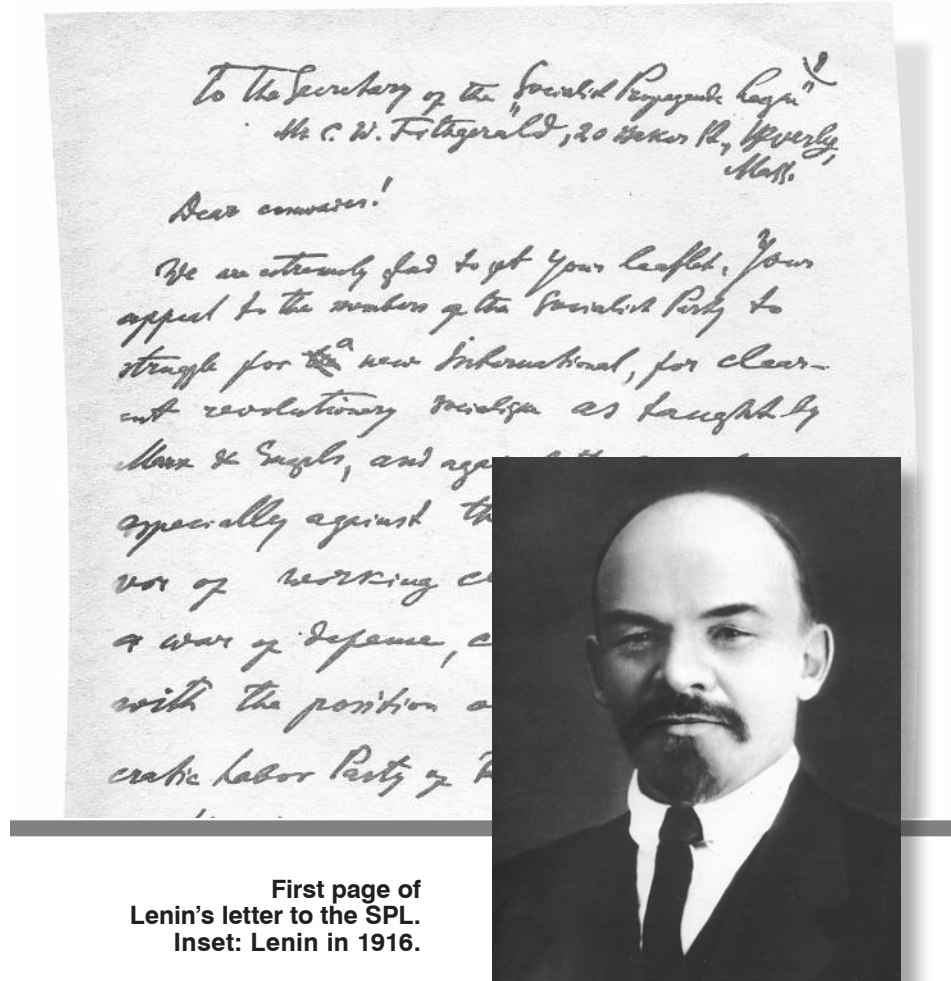 To the Secretary of the "Socialist Propaganda League"
Mr C. W. Fitzgerald, 20 St., Beverly,
Mass.
Dear comrades!
We are extremely glad to get your leaflet. Your
appeal to the members of the Socialist Party to
struggle for a new International, for clear-
cut revolutionary socialism as taught by
Marx & Engels, and
especially against th
vor of working c
a war of defense, c
with the position o
cratic Labor Party of R
First page of
Lenin's letter to the SPL.
Inset: Lenin in 1916.